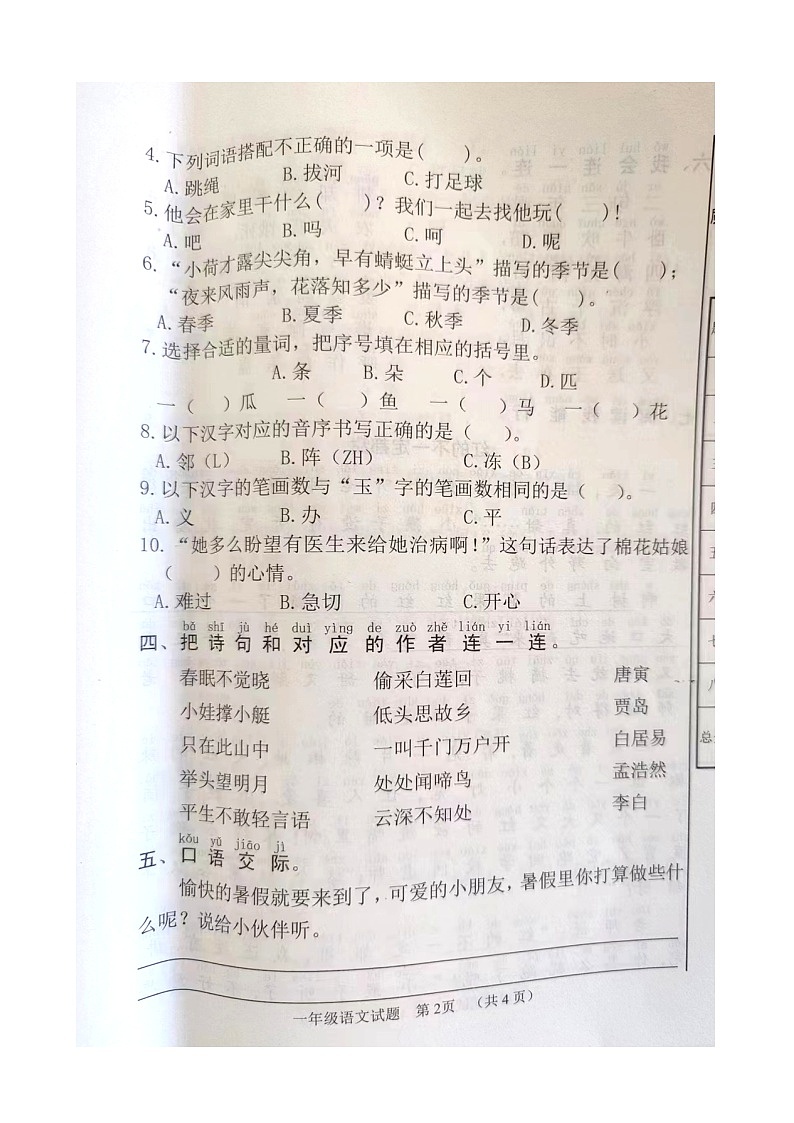 4.下列词语搭配不正确的一项是(    )。
A.跳绳 B.拔河 C.打足球
5.他会在家里干什么(    )？我们一起去找他玩(    )!
A.吧 B.吗 C.呵 D.呢
6.“小荷才露尖尖角，早有蜻蜓立上头”描写的季节是(    )；
“夜来风雨声，花落知多少”描写的季节是(    )。
A.春季 B.夏季 C.秋季 D.冬季
7.选择合适的量词，把序号填在相应的括号里。
A.条 B.朵 C.个 D.匹
一(    )瓜 一(    )鱼 一(    )马 一(    )花
8.以下汉字对应的音序书写正确的是(    )。
A.邻（L） B.阵（ZH） C.冻（B）
9.以下汉字的笔画数与“玉”字的笔画数相同的是(    )。
A.义 B.办 C.平
10.“她多么盼望有医生来给她治病啊！”这句话表达了棉花姑娘
(    )的心情。
A.难过 B.急切 C.开心
bǎ shī jù hé duì yìng de zuò zhě lián yi lián
四、把诗句和对应的作者连一连。
春眠不觉晓 偷采白莲回 唐寅
小娃撑小艇 低头思故乡 贾岛
只在此山中 一叫千门万户开 白居易
举头望明月 处处闻啼鸟 孟浩然
平生不敢轻言语 云深不知处 李白
kǒu yǔ jiāo jì
五、口语交际。
愉快的暑假就要来到了，可爱的小朋友，暑假里你打算做些什
么呢？说给小伙伴听。
一年级语文试题 第2页 （共4页）